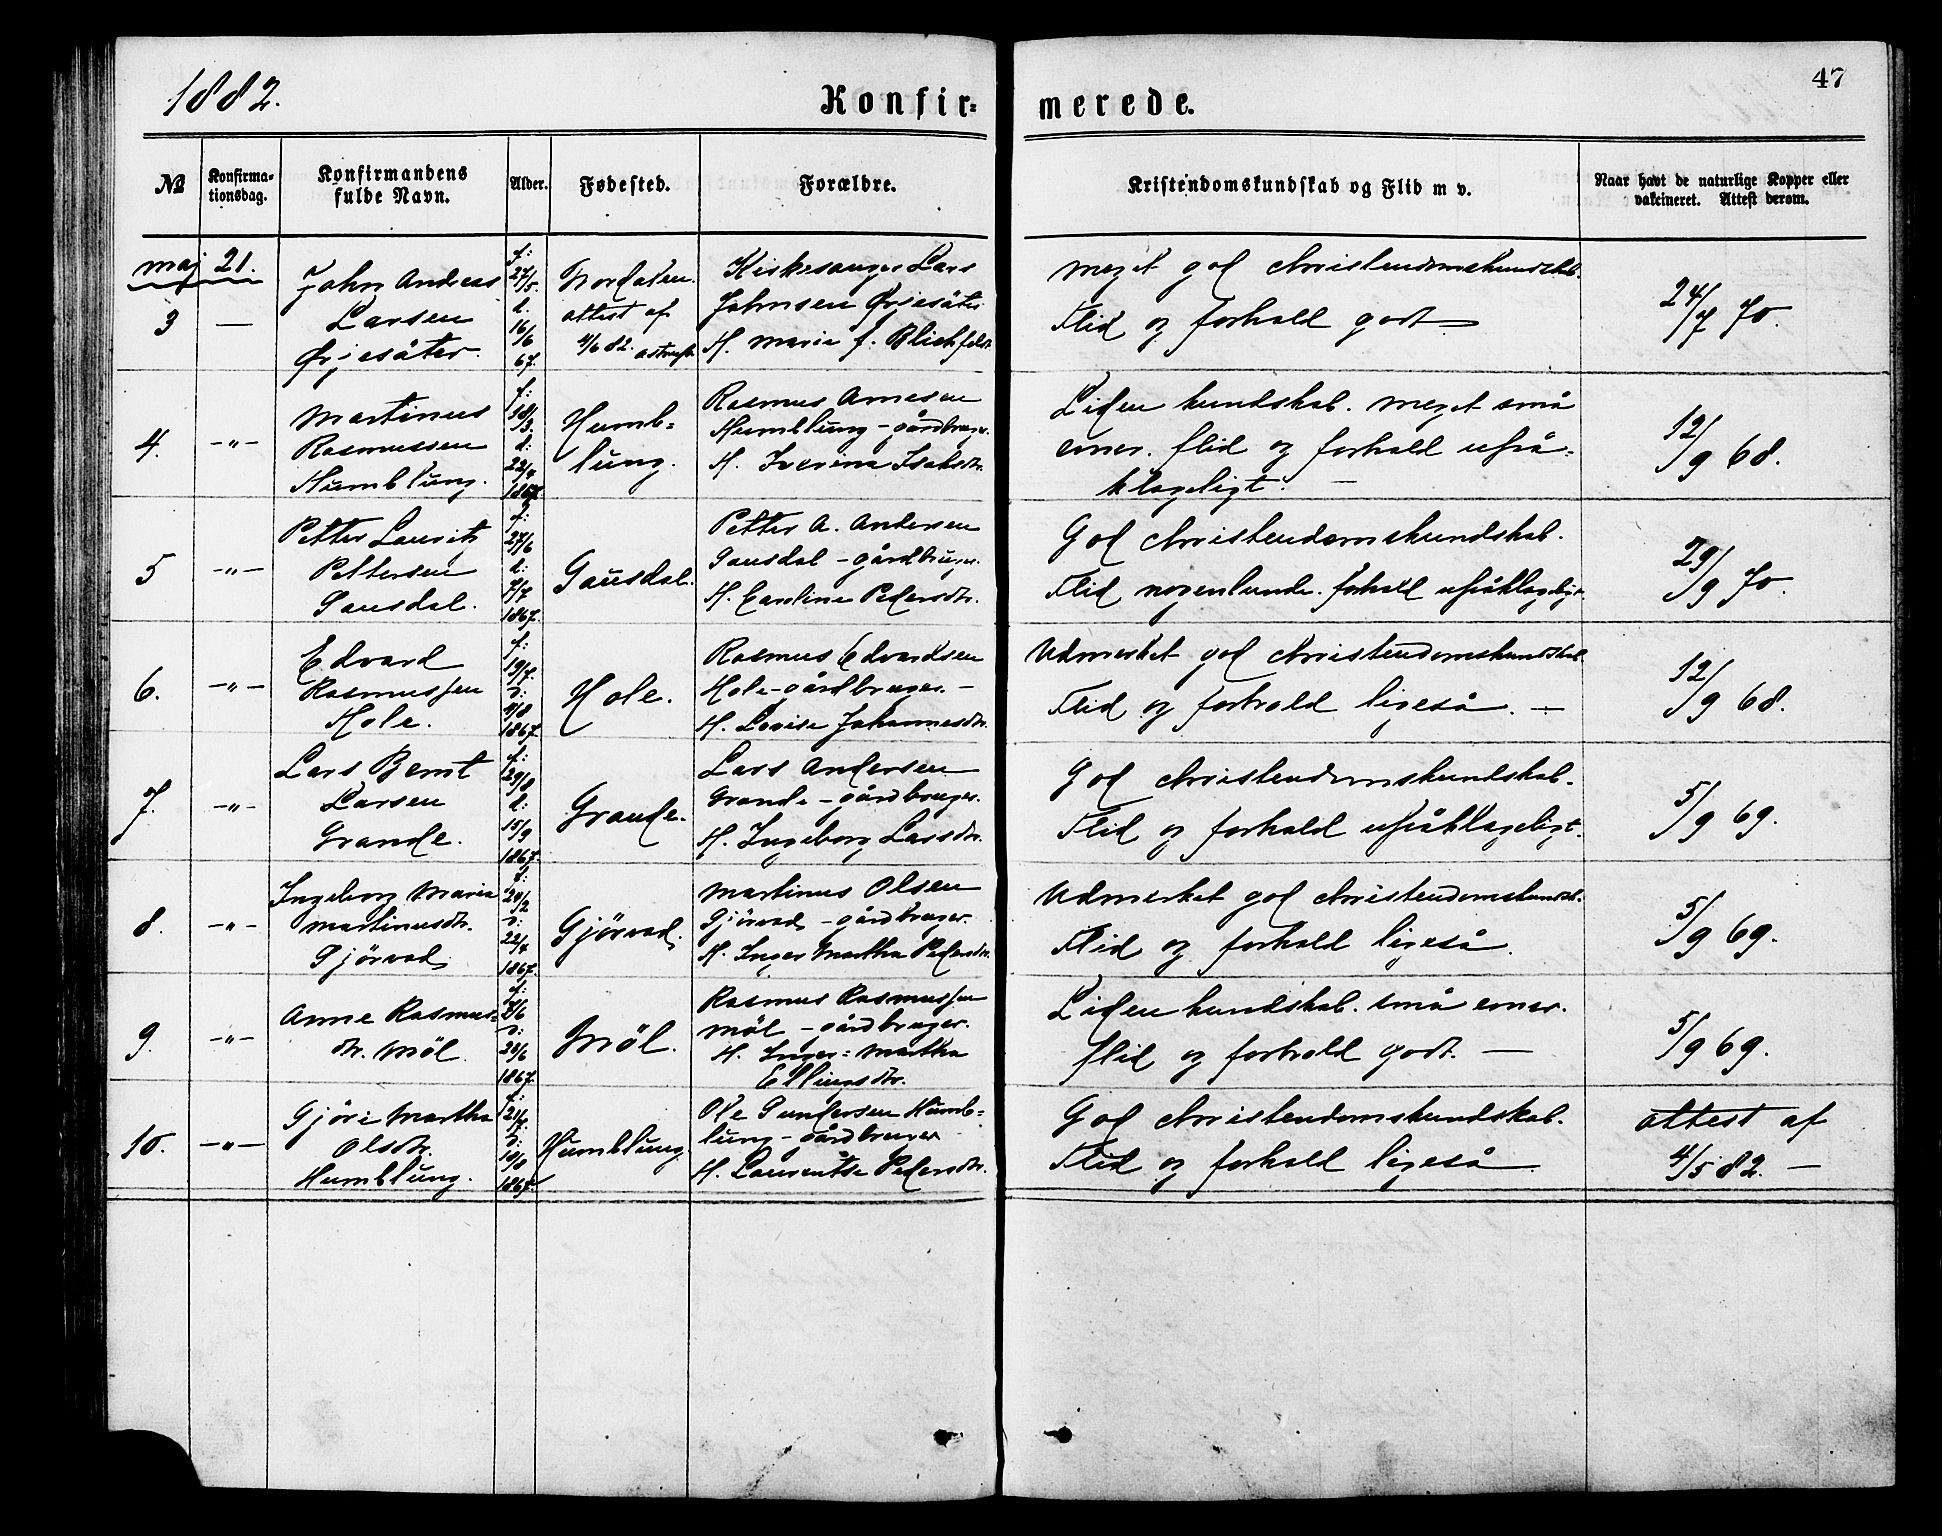 1882.
Konfir-
merede.
47
No
Konfirma-
tionsdag.
Konfirmandens
fulde Navn.
Alder.
Fødested.
Forældre.
Kristendomskundskab og Flid m v.
Naar havt de naturlige Kopper eller
vakcineret. Attest derom.
maj 21.
3
—
John Andreas
Larsen
Ørjesäter.
f:
27/5.
d.
16/6
67.
attest af
4/6 82.
Kirkesanger Lars
Johnsen Ørjesäter.
H. Marie f. Blichfeldt
Meget god christendomskundskb.
Flid og forhold godt
24/7 70.
4.
-"-
Martinus
Rasmussen
Humblung.
f:
18/3.
d:
22/4
1867.
Humb-
lung.
Rasmus Arnesen
Humblung - gårdbruger.
H. Iverina Isaksdtr.
Liden kundskab. meget små
evner. flid og forhold upå-
klageligt. —
12/9 68.
5
-"-
Petter Laurits
Pettersen
Gausdal.
f:
27/6
d:
7/7
1867.
Gausdal.
Petter A. Andersen
Gausdal - gårdbruger.
H. Caroline Pedersdtr.
God christendomskundskab.
Flid nogenlunde. forhold upåklageligt
29/9 70.
6.
-"-
Edvard
Rasmussen
Hole.
f:
19/7.
d:
4/8
1867.
Hole.
Rasmus Edvardsen
Hole - gårdbruger. -
H. Lovise Johannesdtr.
Udmerket god christendomskundskab
Flid og forhold ligeså. —
12/9 68.
7.
-"-
Lars Bernt
Larsen
Grande.
f:
29/8
d:
15/9
1867.
Grande.
Lars Andersen
Grande - gårdbruger.
H. Ingeborg Larsdtr.
God christendomskundskab.
Flid og forhold upåklageligt.
5/9 69.
8.
-"-
Ingeborg Maria
Martinusdtr.
Gjörvad.
f:
24/2
d:
22/4
1867.
Gjörvad.
Martinus Olsen
Gjörvad - gårdbruger.
H. Inger Martha Pedersdtr.
Udmerket god christendomskundsk.
Flid og forhold ligeså.
5/9 69.
9.
-"-
Anne Rasmus-
dtr. Möl.
f:
2/6
d:
29/6
1867.
Möl.
Rasmus Rasmussen
Möl - gårdbruger.
H. Inger - Martha
Ellingsdtr.
Liden kundskab. små evner.
flid og forhold godt. —
5/9 69.
10.
-"-
Gjöri Martha
Olsdtr.
Humblung.
f:
21/7.
d:
10/8
1867.
Humblung.
Ole Gundersen Humb-
lung - gårdbruger
H. Lauentse Pedersdtr.
God christendomskundskab.
Flid og forhold ligeså
attest af
4/5 82. —